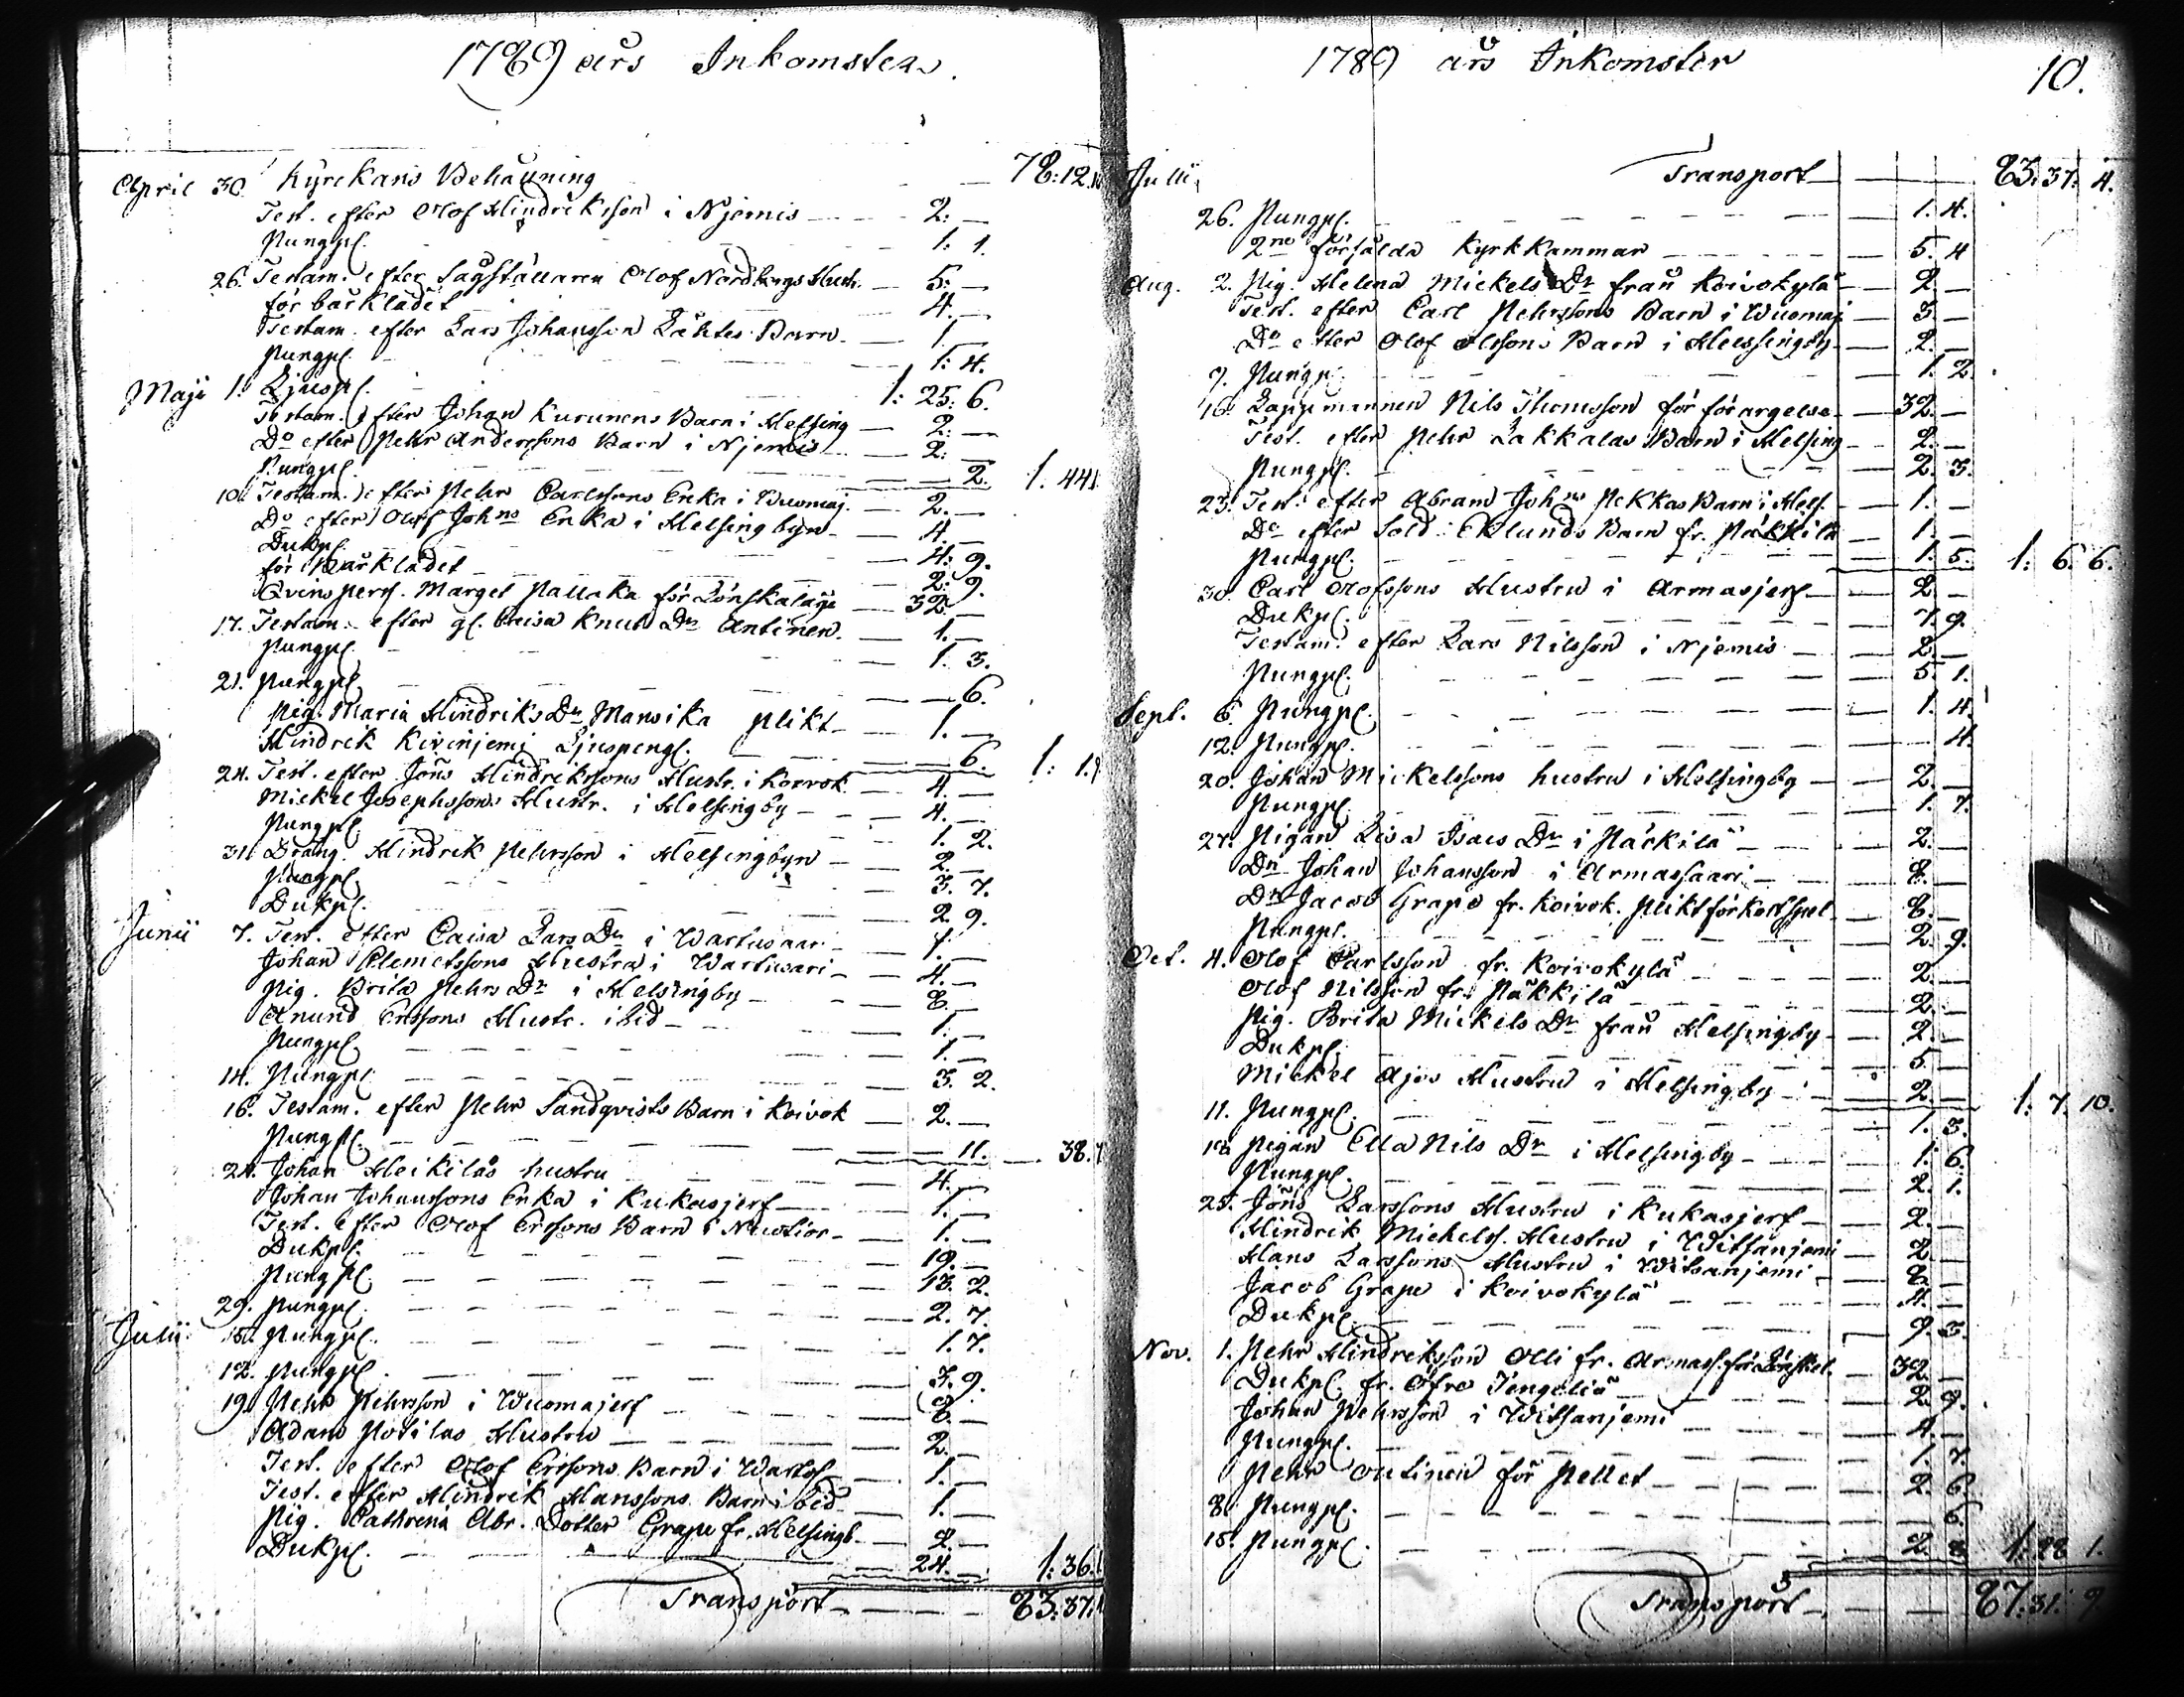 1789 års Inkomster.
April 30. Kyrkans Behållning — 78:12.10
Test. efter Olof Hindriksson i Njemis — 2: —
Pungp. — 1. 1.
26. Testam. efter Sågställaren Olof Nordbergs Hustr. — 5: —
för bårklädet — 4. —
Testam. efter Lars Johansson Lähtes Barn — 1. —
Pungp. — 1: 4.
Maji 1. Ljusp. 1: 25: 6.
Testam. efter Johan Kurunens Barn i Helsing — 2: —
Do efter Pehr Anderssons Barn i Njemis — 2: —
Pungp. — 2. 1. 44
10. Testam. efter Pehr Carlssons Enka i Wuomaj. — 2. —
Do efter Olof Johns Enka i Helsingbyn — 4. —
Dukp. — 4: 9.
för Bårklädet — 2: 9.
Qvinspers. Marget Pallaka för Lönskaläge — 32. —
17. Testam. efter gl. Caisa Knuts Dr Antinen. — 1. —
Pungp. — 1. 3.
21. Pungp. — 6.
Pig. Maria Hindriks Dr Mansika plikt — 1. —
Hindrik Kivinjemi Ljuspeng. — 6. 1: 1.
24. Test. efter Jöns Hindrikssons Hustr. i Koivok. — 4. —
Mickel Josephssons Hustr. i Helsingby — 4. —
Pungp. — 1. 2.
31. Dräng. Hindrik Pehrsson i Helsingbyn — 2. —
Pungp. — 3. 7.
Dukp. — 2. 9.
Junii 7. Test. efter Caisa Lars Dr i Wartusaari — 1. —
Johan Clemetssons Hustru i Wartusari — 4. —
Pig. Brita Pehrs Dr i Helsingby — 8. —
Anund Erssons Hustr. ibid — 1. —
Pungp. — 1. —
14. Pungp. — 3. 2.
16. Testam. efter Pehr Sandqvists Barn i Koivok — 2. —
Pungp. — 11. — 38.
24. Johan Heikiläs hustru — 4. —
Johan Johanssons Enka i Kukasjerf — 1. —
Test. efter Olof Erssons Barn i — 1. —
Dukp. — 19. —
Pungp. — 13. 2.
29. Pungp. — 2. 7.
Julii Pungp. — 1. 7.
12. Pungp. — 3. 9.
19. Pehr Pehrsson i Wuomajerf — 8. —
Adam Potilas Hustru — 2. —
Test. efter Olof Erssons Barn i — 1. —
Test. efter Hindrik Hanssons Barn ibid — 1. —
Pig. Cathrina Abr. Dotter Grape fr. Helsingb. — 2. —
Dukp. — 24. — 1: 36.
Transport — 83:37:
1789 års Inkomster
10.
Julii. Transport — 83: 37: 4.
26. Pungp. — 1. 4.
2ne försålda Kyrkkammar — 5. 4
Aug. 2. Pig. Helena Mickels Dr från Koivokylä — 2. —
Test. efter Carl Pehrssons Barn i Wuomaj — 3. —
Do efter Olof Olssons Barn i Helssingby — 2. —
9. Pungp. — 1. 2.
16. Lappmannen Nils Thomsson för förargelse — 32. —
Test. efter Pehr Lakkalas Barn i Helsing — 2. —
Pungp. — 2. 3.
23. Test. efter Abram Johns Pekkas Barn i Hels. — 1. —
Do efter Sold: Eklunds Barn fr. Päkkilä — 1. —
Pungp. — 1. 5. 1: 6. 6.
30. Carl Olofssons Hustru i Armasjerf — 2. —
Dukp. — 7. 9.
Testam. efter Lars Nilsson i Njemis — 2. —
Pungp. — 5. 1.
Sept. 6. Pungp. — 1. 4.
12. Pungp. — 4.
20. Johan Mickelssons hustru i Helsingby — 2. —
Pungp. — 1. 7.
27. Pigan Lisa Isacs Dr i Päckilä — 2. —
Dn Johan Johansson i Armassaari — 8. —
Dn Jacob Grape fr. Koivok. plikt för kortspel — 8. —
Pungp. — 2. 9.
Oct. 4. Olof Carlsson fr. Koivokylä — 2. —
Olof Nilsson fr. Päkkilä — 2. —
Pig. Brita Mickels Dr från Helsingby — 2. —
Dukp. — 5. —
Mickel Ajos Hustru i Helsingby — 2. — 1. 7. 10.
11. Pungp. — 1. 3.
18. Pigan Ella Nils Dr i Helsingby — 1. 6.
Pungp. — 2. 1.
25. Jöns Larssons Hustru i Kukasjerf — 2. —
Hindrik Michels. Hustru i Witsanjemi — 2. —
Hans Larssons Hustru i Witsanjemi — 8. —
Jacob Grape i Koivokylä — 4. —
Dukp. — 9. 3.
Nov. 1. Pehr Hindriksson Olli fr. Armass. för — 32. —
Dukp. fr. Öfre — 2. 9.
Johan Pehrsson i Witsanjemi — 4. —
Pungp. — 1. 7.
Pehr Outinen för Pellet — 2. 6.
8. Pungp. — 6.
15. Pungp. — 2. 8. 1: 28 1.
Transport — 87:31: 9